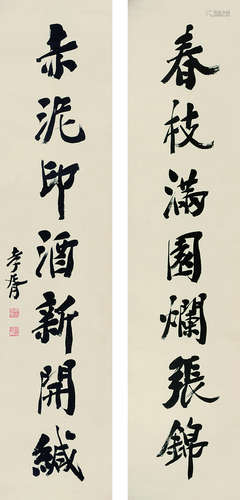 春枝滿園爛張錦
赤泥印酒新開緘
孝胥